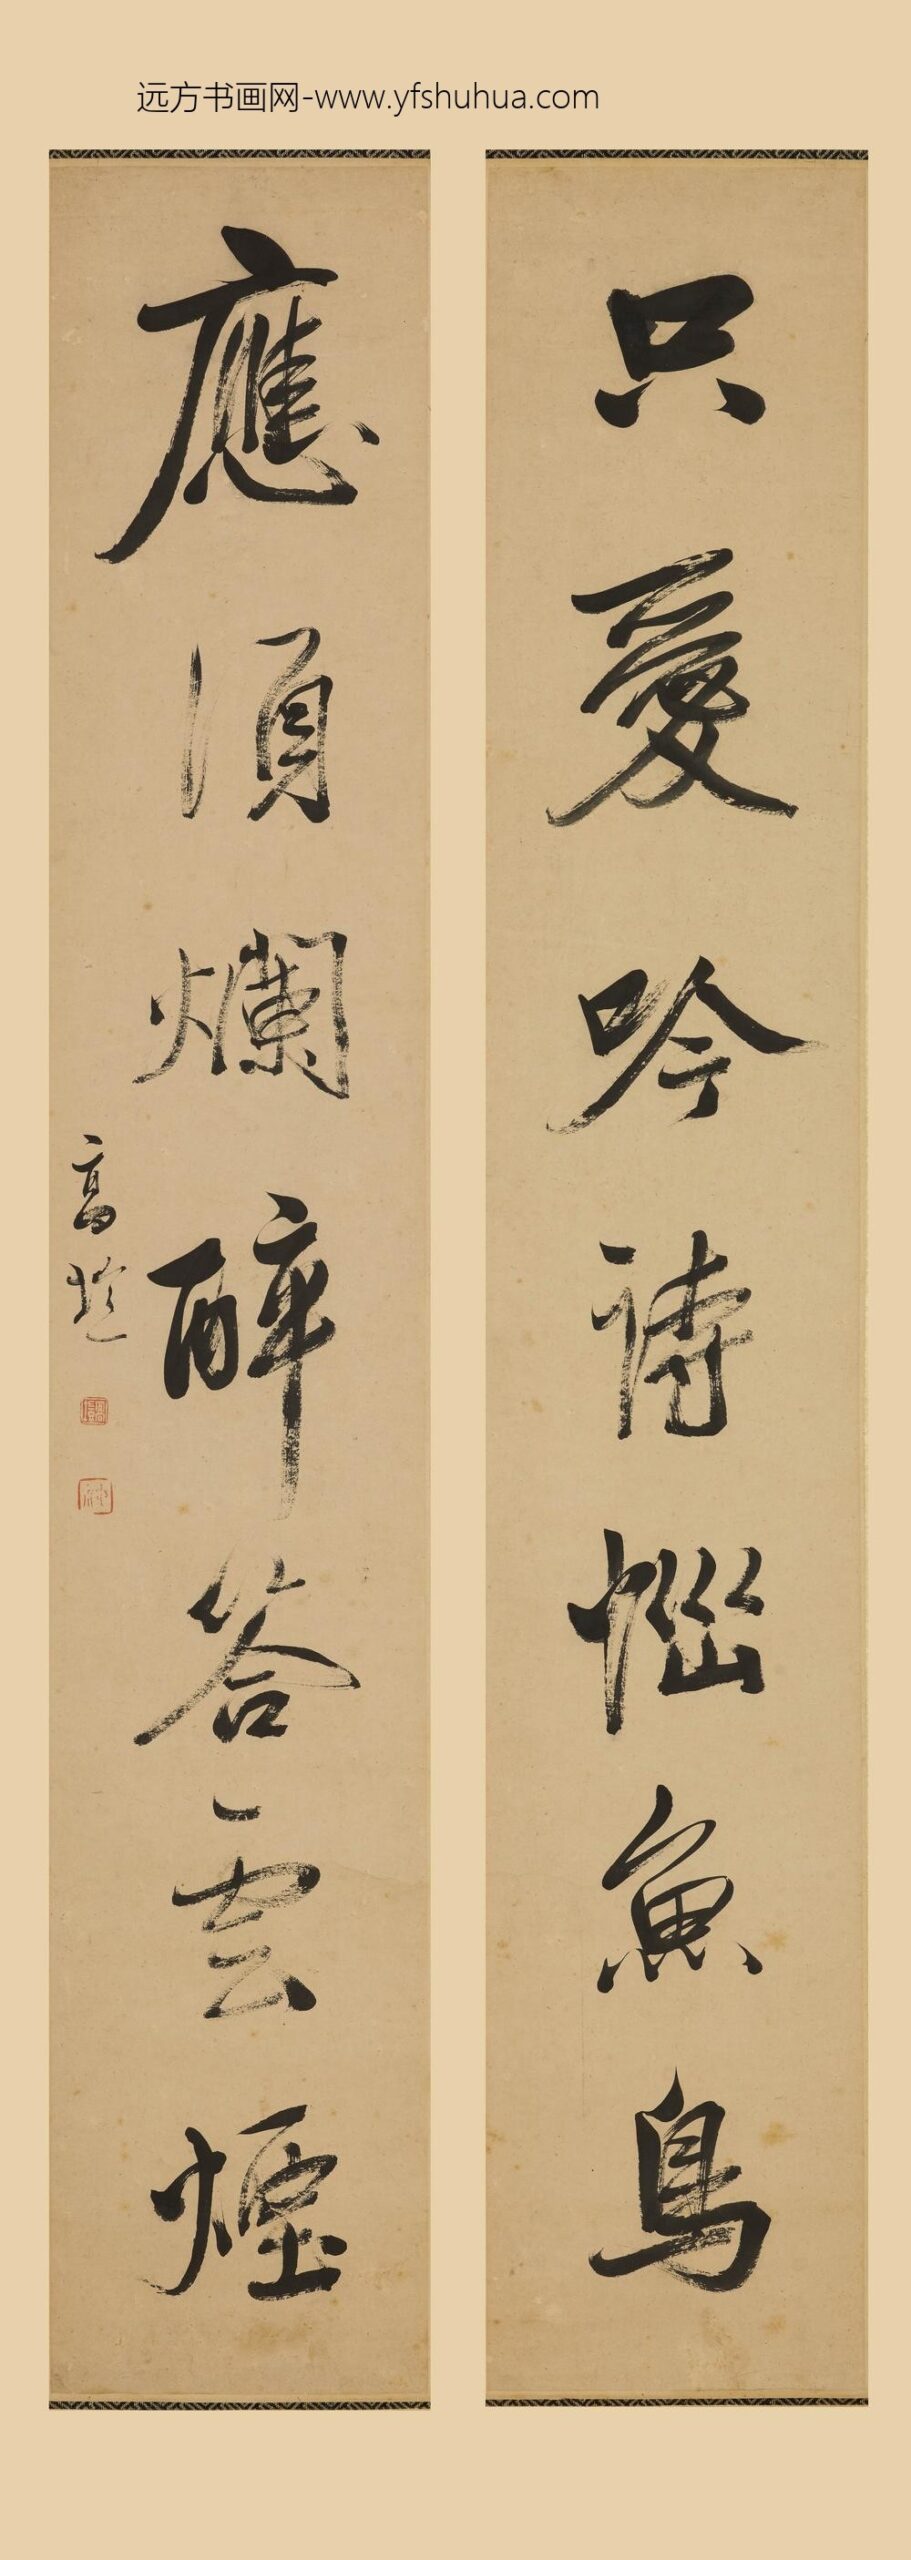 远方书画网-www.yfshuhua.com
只愛吟詩惱魚鳥
應須爛醉答雲煙
高